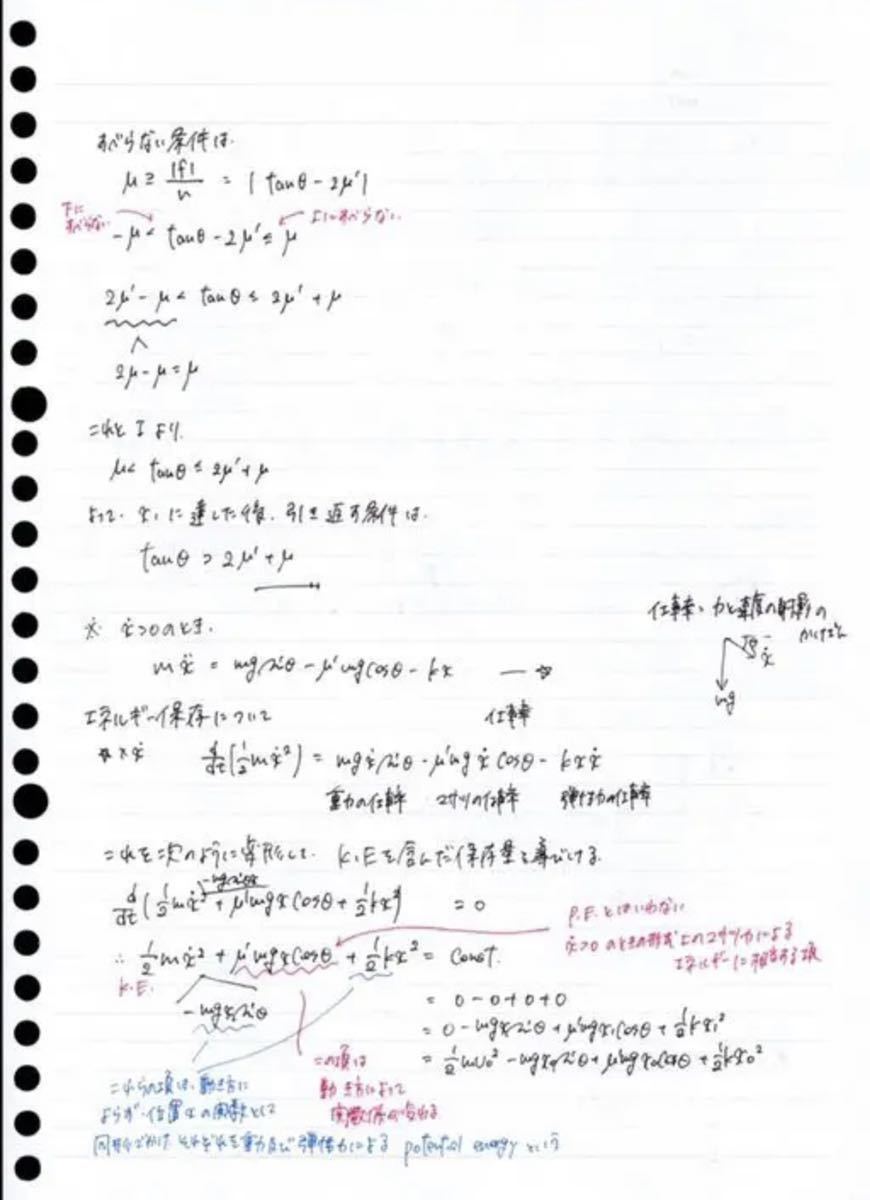 すべらない条件は.
μ ≥ |f|/n = | tanθ - 2μ' |
下に すべらない 上にすべらない.
-μ < tanθ - 2μ' ≤ μ
2μ' - μ < tanθ ≤ 2μ' + μ
∧
2μ - μ = μ
これと I より.
μ < tanθ ≤ 2μ' + μ
よって. x₁ に達した後, 引き返す条件は.
tanθ > 2μ' + μ
仕事率: 力と速度の射影の かけざん
※ ẋ>0 のとき.
mẍ = mg sinθ - μ'mg cosθ - kx —☆
ẋ
mg
エネルギー保存について 仕事率
☆ × ẋ d/dt(1/2 mẋ²) = mgẋ sinθ - μ'mgẋ cosθ - kxẋ
重力の仕事率 マサツの仕事率 弾性力の仕事率
これを次のように変形して. K.E を含んだ保存量を導びける.
-mg sinθx
d/dt(1/2 mẋ² + μ'mgx cosθ + 1/2 kx²) = 0
P.E. とはいわない
ẋ>0 のときの形式上のマサツ力による
エネルギーに相当する項
∴ 1/2 mẋ² + μ'mgx cosθ + 1/2 kx² = const.
K.E.
-mgx sinθ
= 0 - 0 + 0 + 0
= 0 - mgx₁ sinθ + μ'mgx₁ cosθ + 1/2 kx₁²
= 1/2 mv₀² - mgx₀ sinθ + μ'mgx₀ cosθ + 1/2 kx₀²
この項は
動き方によって
関数形が変わる
これらの項は, 動き方に
よらず. 位置 x の関数として
同形でかけ それぞれを重力及び弾性力による potential energy という